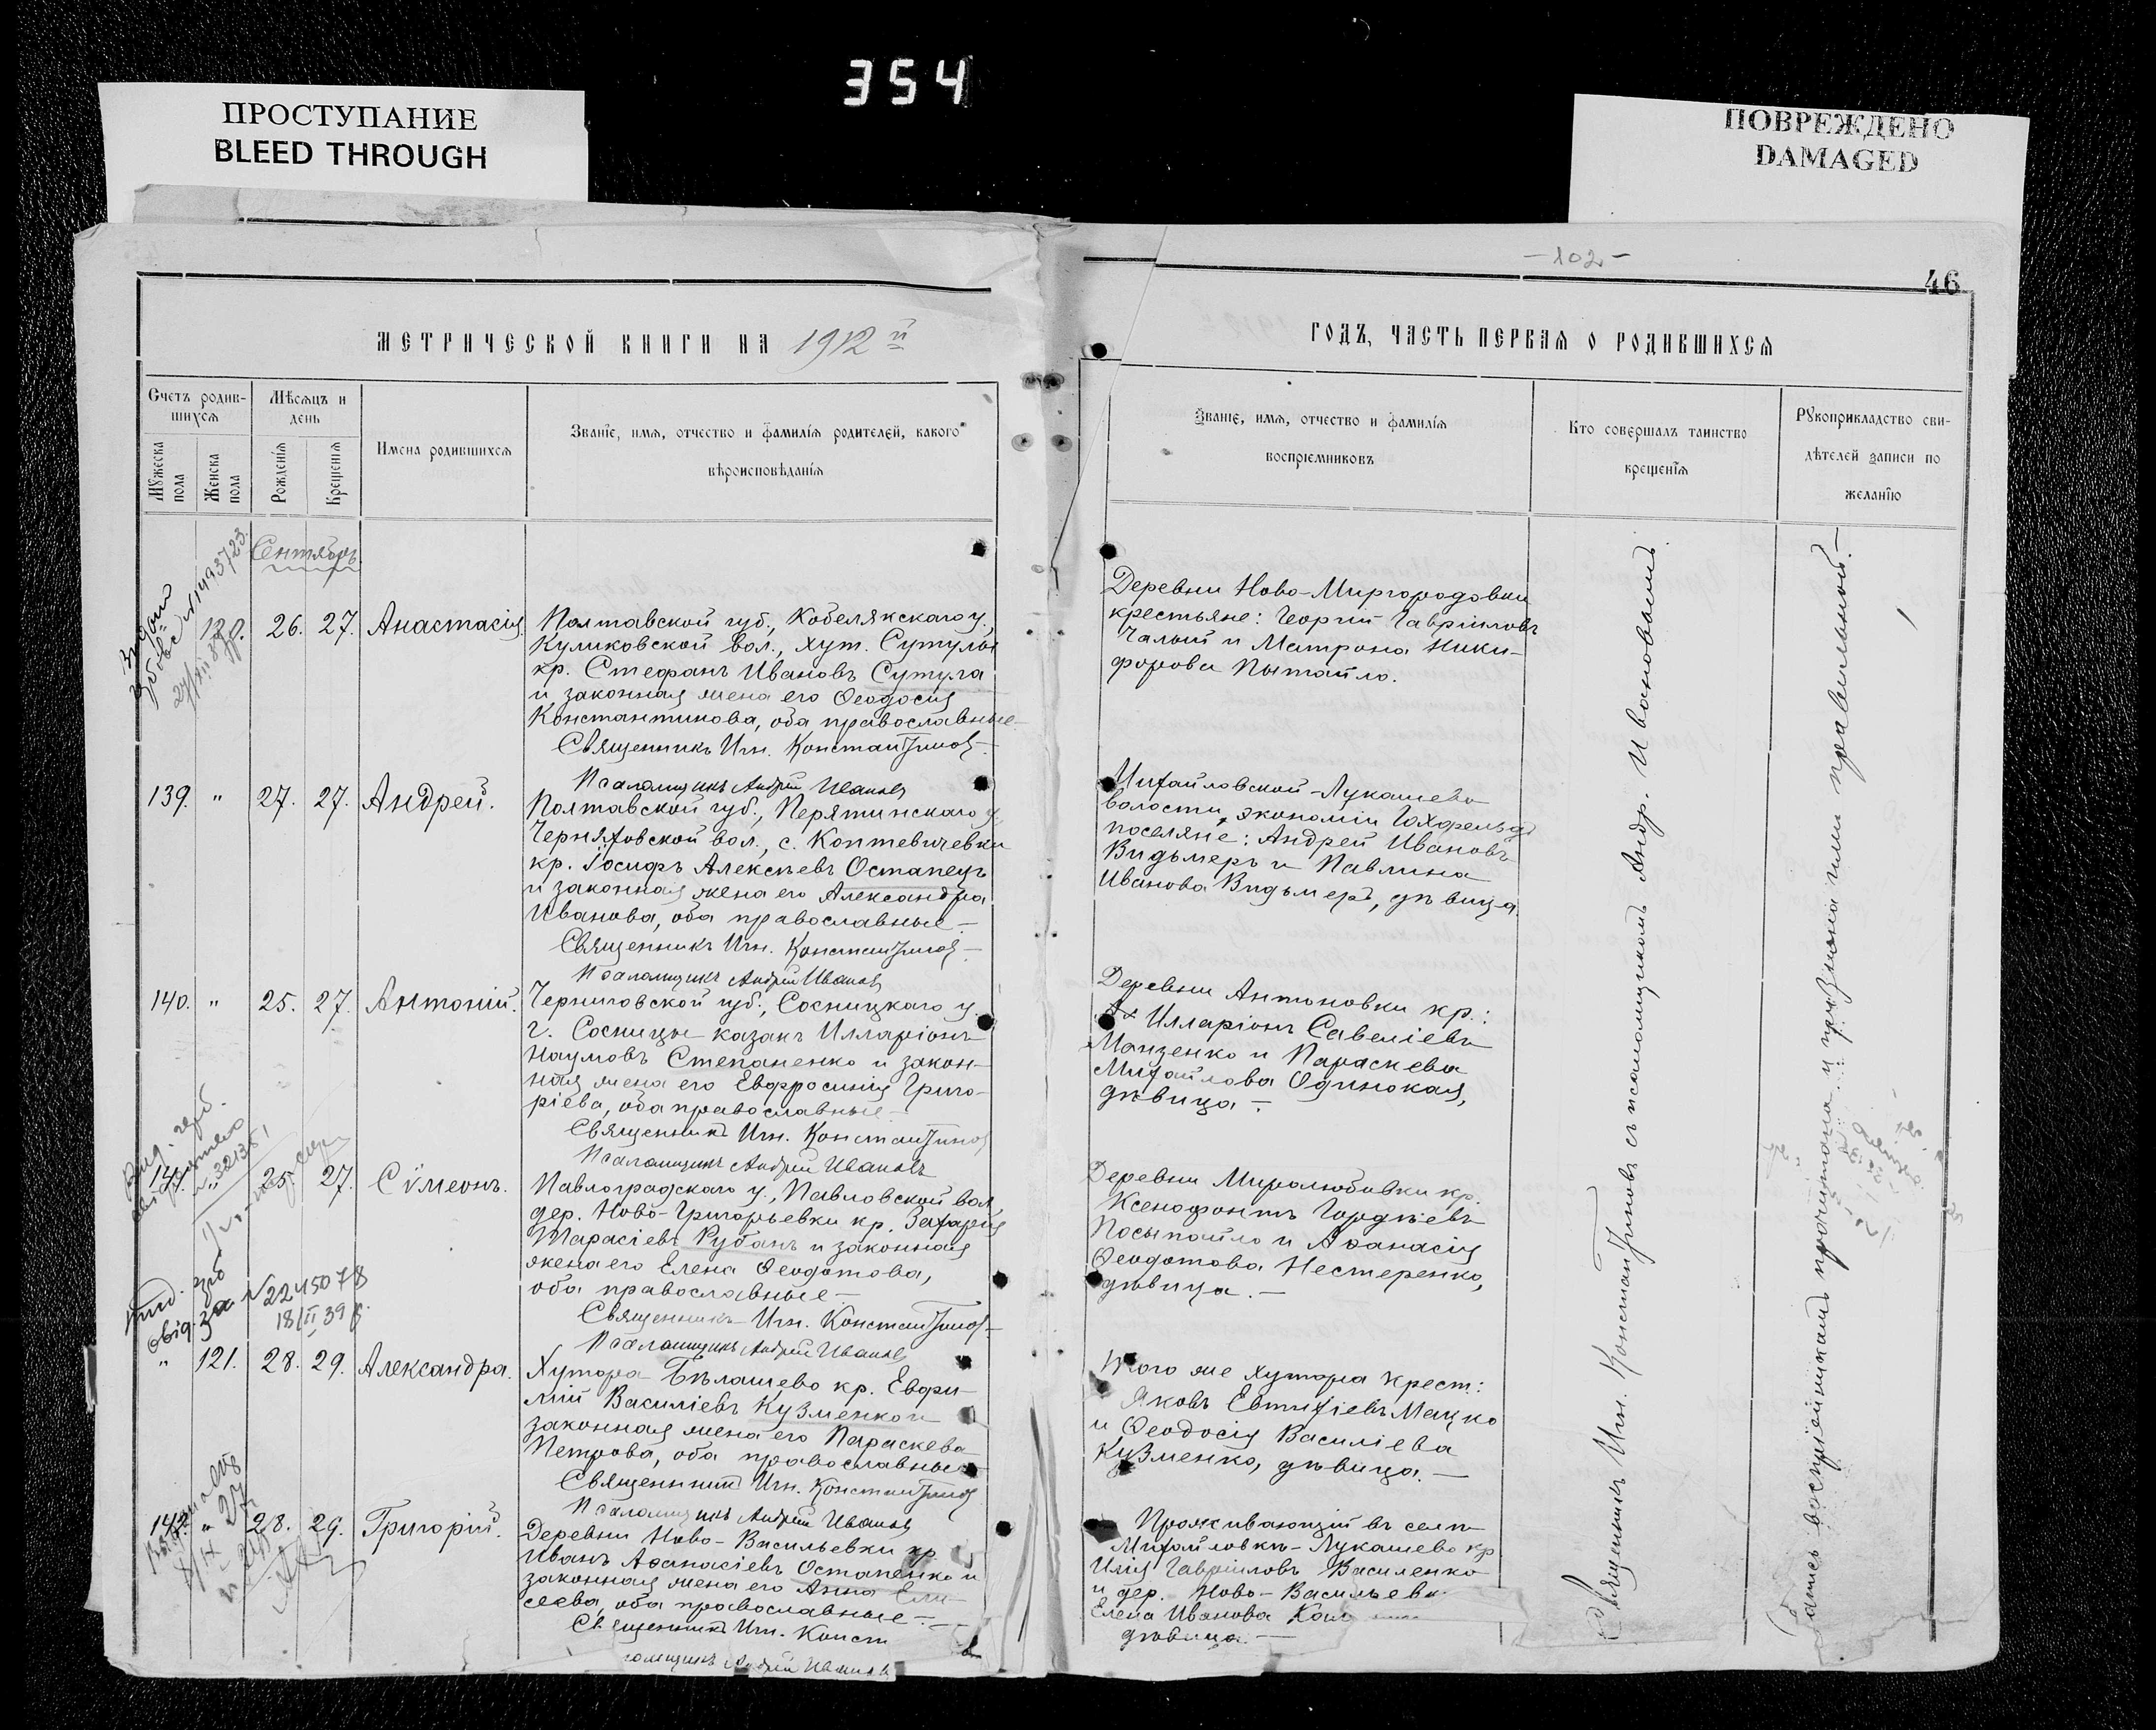 354
ПРОСТУПАНИЕ
BLEED THROUGH
ПОВРЕЖДЕНО
DAMAGED
МЕТРИЧЕСКОЙ КНИГИ НА 1912 й
Счетъ родив-
шихся
Мѣсяцъ и
день
Мужеска
пола
Женска
пола
Рожденія
Крещенія
Имена родившихся
Званіе, имя, отчество и фамилія родителей, какого
вѣроисповѣданія
Сентябрь
120. 26. 27. Анастасія.
Полтавской губ., Кобелякскаго у.,
Куликовской вол., хут. Сутулы
кр. Стефанъ Ивановъ Сутула
и законная жена его Ѳеодосія
Константинова, оба православные
Священникъ Игн. Константиновъ
Псаломщикъ Андрей Ивановъ
139. " 27. 27. Андрей.
Полтавской губ., Перятинскаго у.
Черняховской вол., с. Коптевичевки
кр. Іосифъ Алексѣевъ Остапецъ
и законная жена его Александра
Иванова, оба православные
Священникъ Игн. Константиновъ
Псаломщикъ Андрей Ивановъ
140. " 25. 27. Антоній.
Черниговской губ., Сосницкаго у.
г. Сосницы казакъ Илларіонъ
Наумовъ Степаненко и закон-
ная жена его Евфросинія Григо-
ріева, оба православные
Священникъ Игн. Константиновъ
Псаломщикъ Андрей Ивановъ
141. " 25. 27. Сѵмеонъ.
Павлоградскаго у., Павловской вол.
дер. Ново-Григорьевки кр. Захарія
Тарасіевъ Рубанъ и законная
жена его Елена Ѳеодотова,
оба православные
Священникъ Игн. Константиновъ
Псаломщикъ Андрей Ивановъ
2245078
18/II 39 р.
" 121. 28. 29. Александра.
Хутора Бѣлашево кр. Евфи-
мій Василіевъ Кузменко и
законная жена его Параскева
Петрова, оба православные
Священникъ Игн. Константиновъ
Псаломщикъ Андрей Ивановъ
142. " 28. 29. Григорій.
Деревни Ново-Васильевки кр.
Иванъ Аѳанасіевъ Остапенко и
законная жена его Анна Ели-
сеева, оба православные
Священникъ Игн. Конст
ломщикъ Андрей Ивановъ
-102-
46
ГОДЪ, ЧАСТЬ ПЕРВАЯ О РОДИВШИХСЯ
Званіе, имя, отчество и фамилія
воспріемниковъ
Кто совершалъ таинство
крещенія
Рукоприкладство сви-
дѣтелей записи по
желанію
Деревни Ново-Миргородовки
крестьяне: Георгій Гавріиловъ
Чалый и Матрона Ники-
форова Пытайло.
Михайловской-Лукашево
волости, экономіи
поселяне: Андрей Ивановъ
Видьмеръ и Павлина
Иванова Видьмеръ, дѣвица.
Деревни Антоновки кр.:
Илларіонъ Савеліевъ
Манзенко и Параскева
Михайлова Одинокая,
дѣвица.
Деревни Миролюбовки кр.
Ксенофонтъ Гордѣевъ
Посыпайло и Аѳанасія
Ѳеодотова Нестеренко,
дѣвица.
Того же хутора крест.:
Яковъ Евтихіевъ Мацко
и Ѳеодосія Василіева
Кузменко, дѣвица.
Проживающій въ селѣ
Михайловкѣ-Лукашево кр.
Илія Гавріиловъ Василенко
и дер. Ново-Васильевк
Елена Иванова
дѣвица.
Священникъ Игн. Константиновъ съ псаломщикомъ Андр. Ивановымъ
Запись воспріемникамъ прочитана и признана ими правильной.